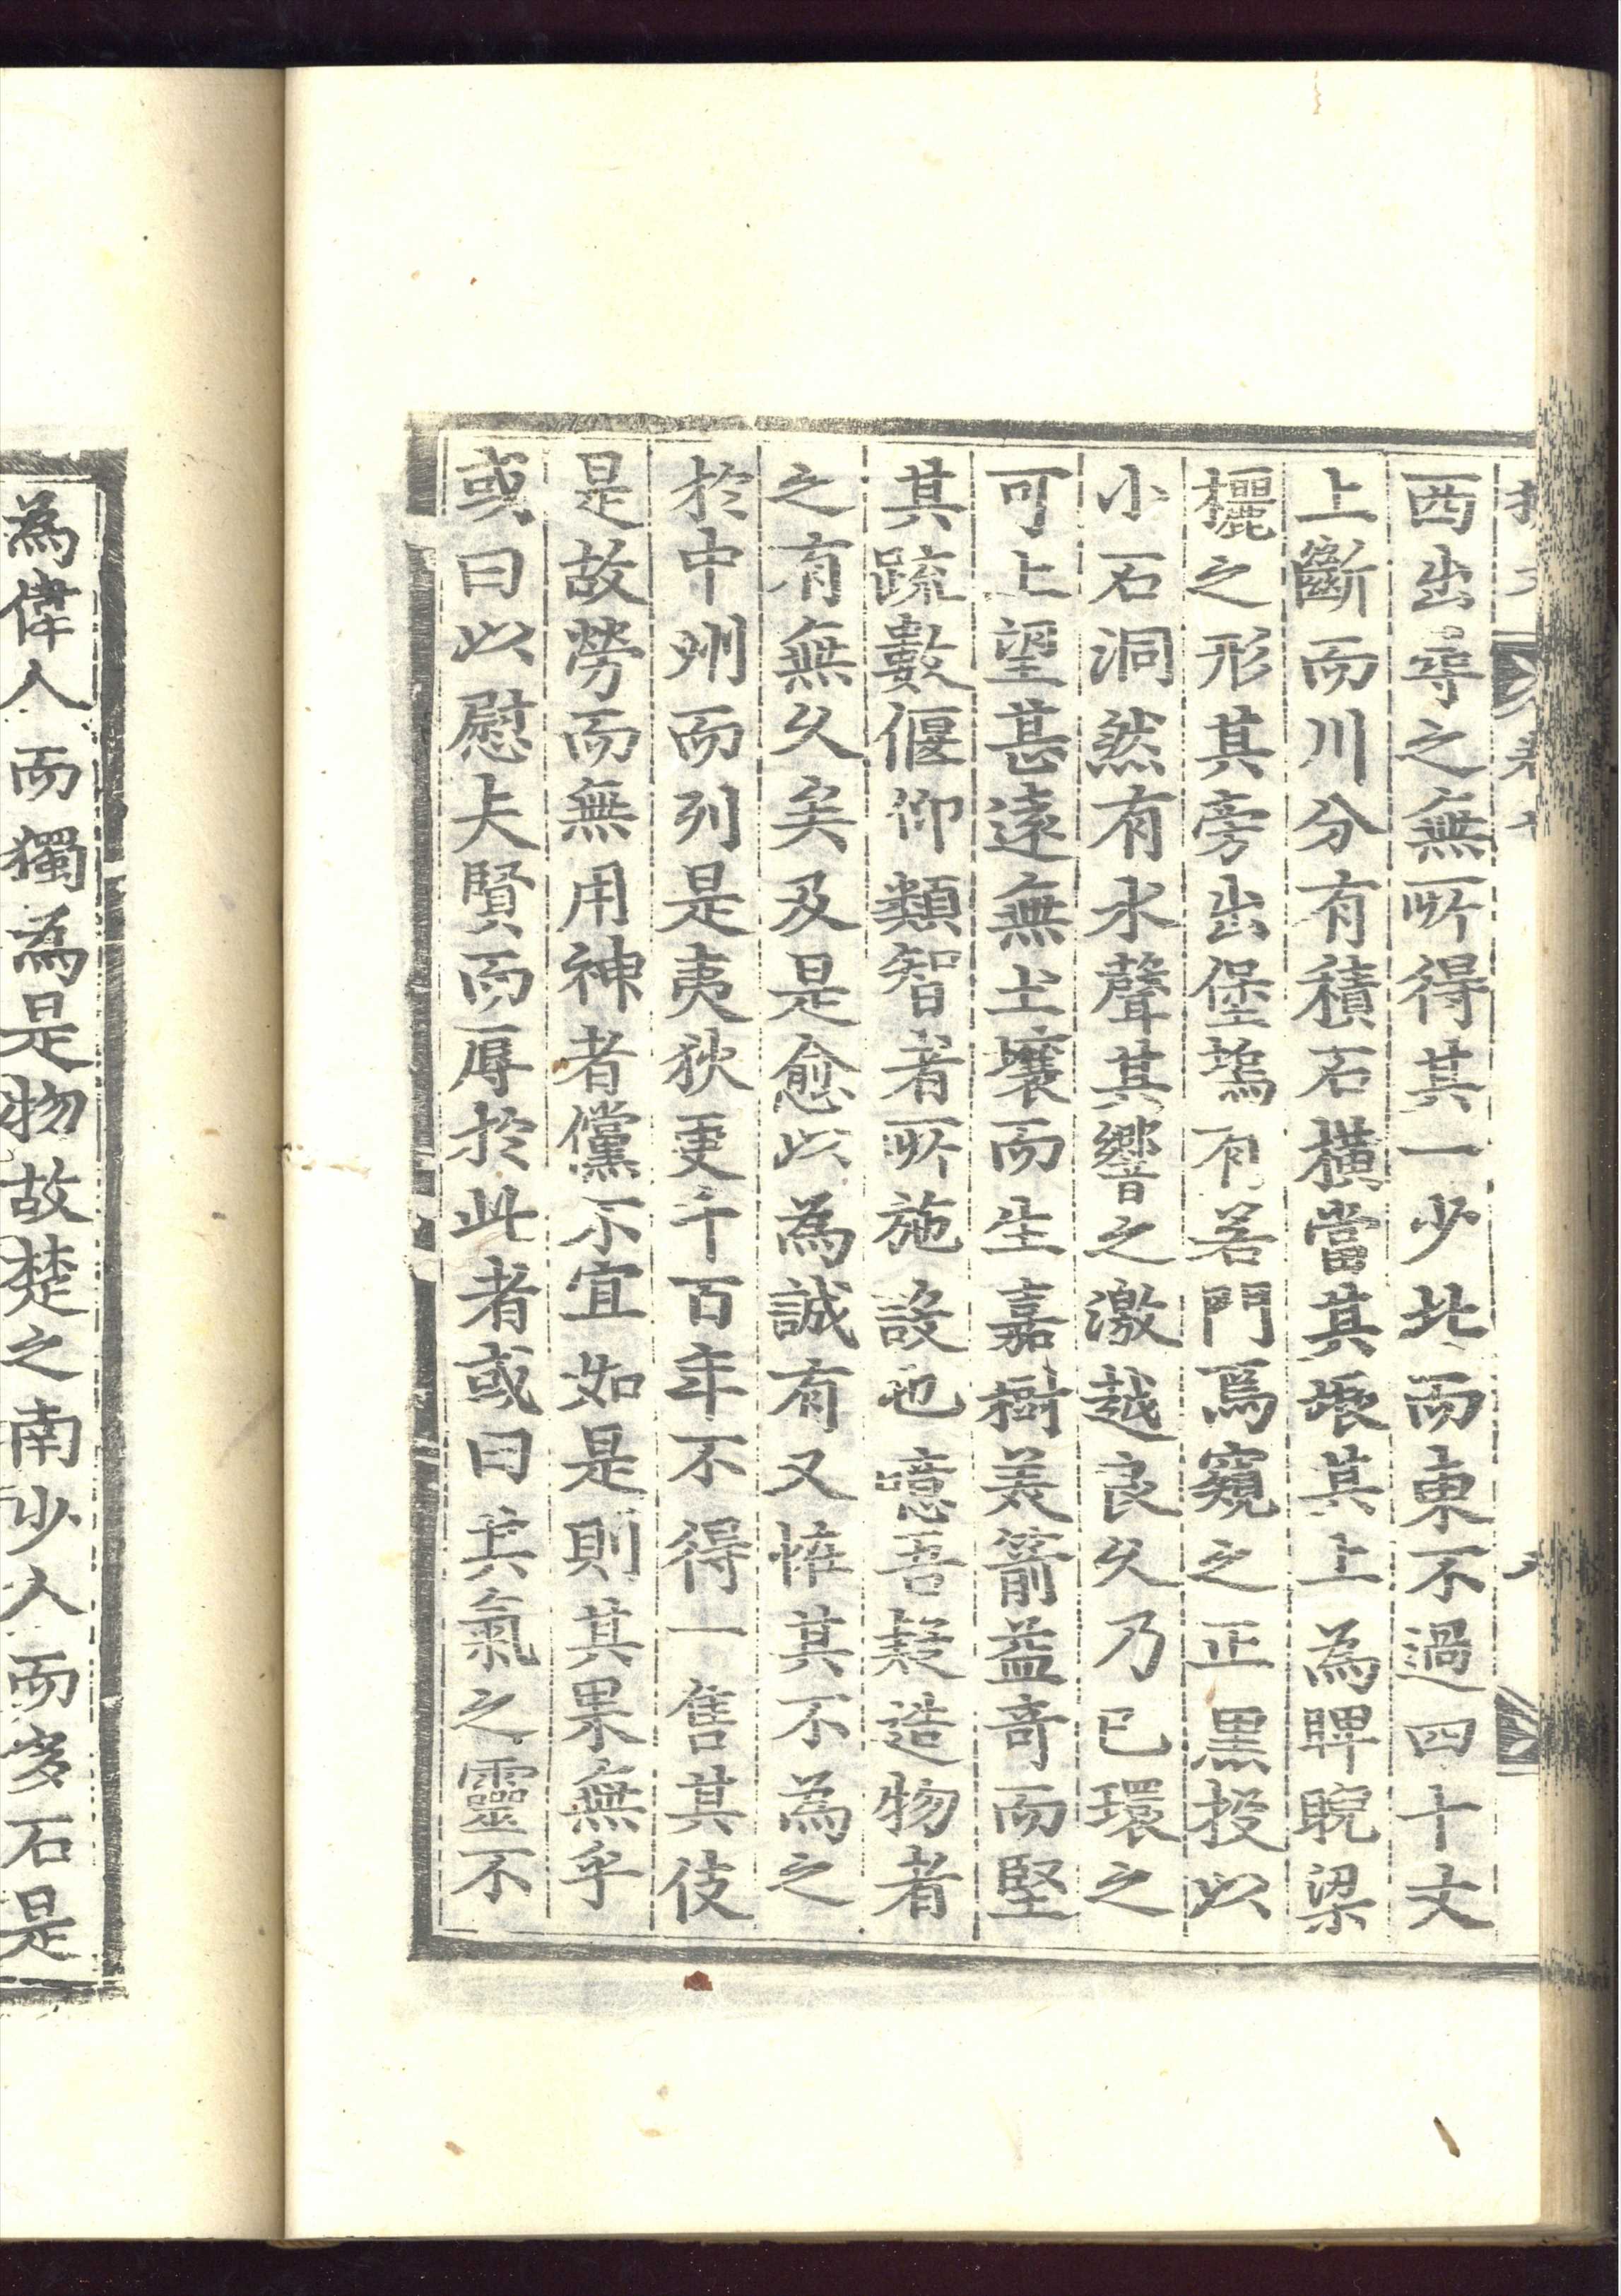 西出尋之無所得其一少北而東不過四十丈
上斷而川分有積石橫當其垠其上為睥睨梁
欐之形其旁出堡塢有若門焉窺之正黑投以
小石洞然有水聲其響之激越良久乃已環之
可上望甚遠無土壤而生嘉樹美箭益竒而堅
其䟽數偃仰類智者所施設也噫吾疑造物者
之有無久矣及是愈以為誠有又怪其不為之
於中州而列是夷狄更千百年不得一售其伎
是故勞而無用神者儻不宜如是則其果無乎
或曰以慰夫賢而辱於此者或曰其氣之靈不
為偉人而獨為是物故楚之南少人而多石是